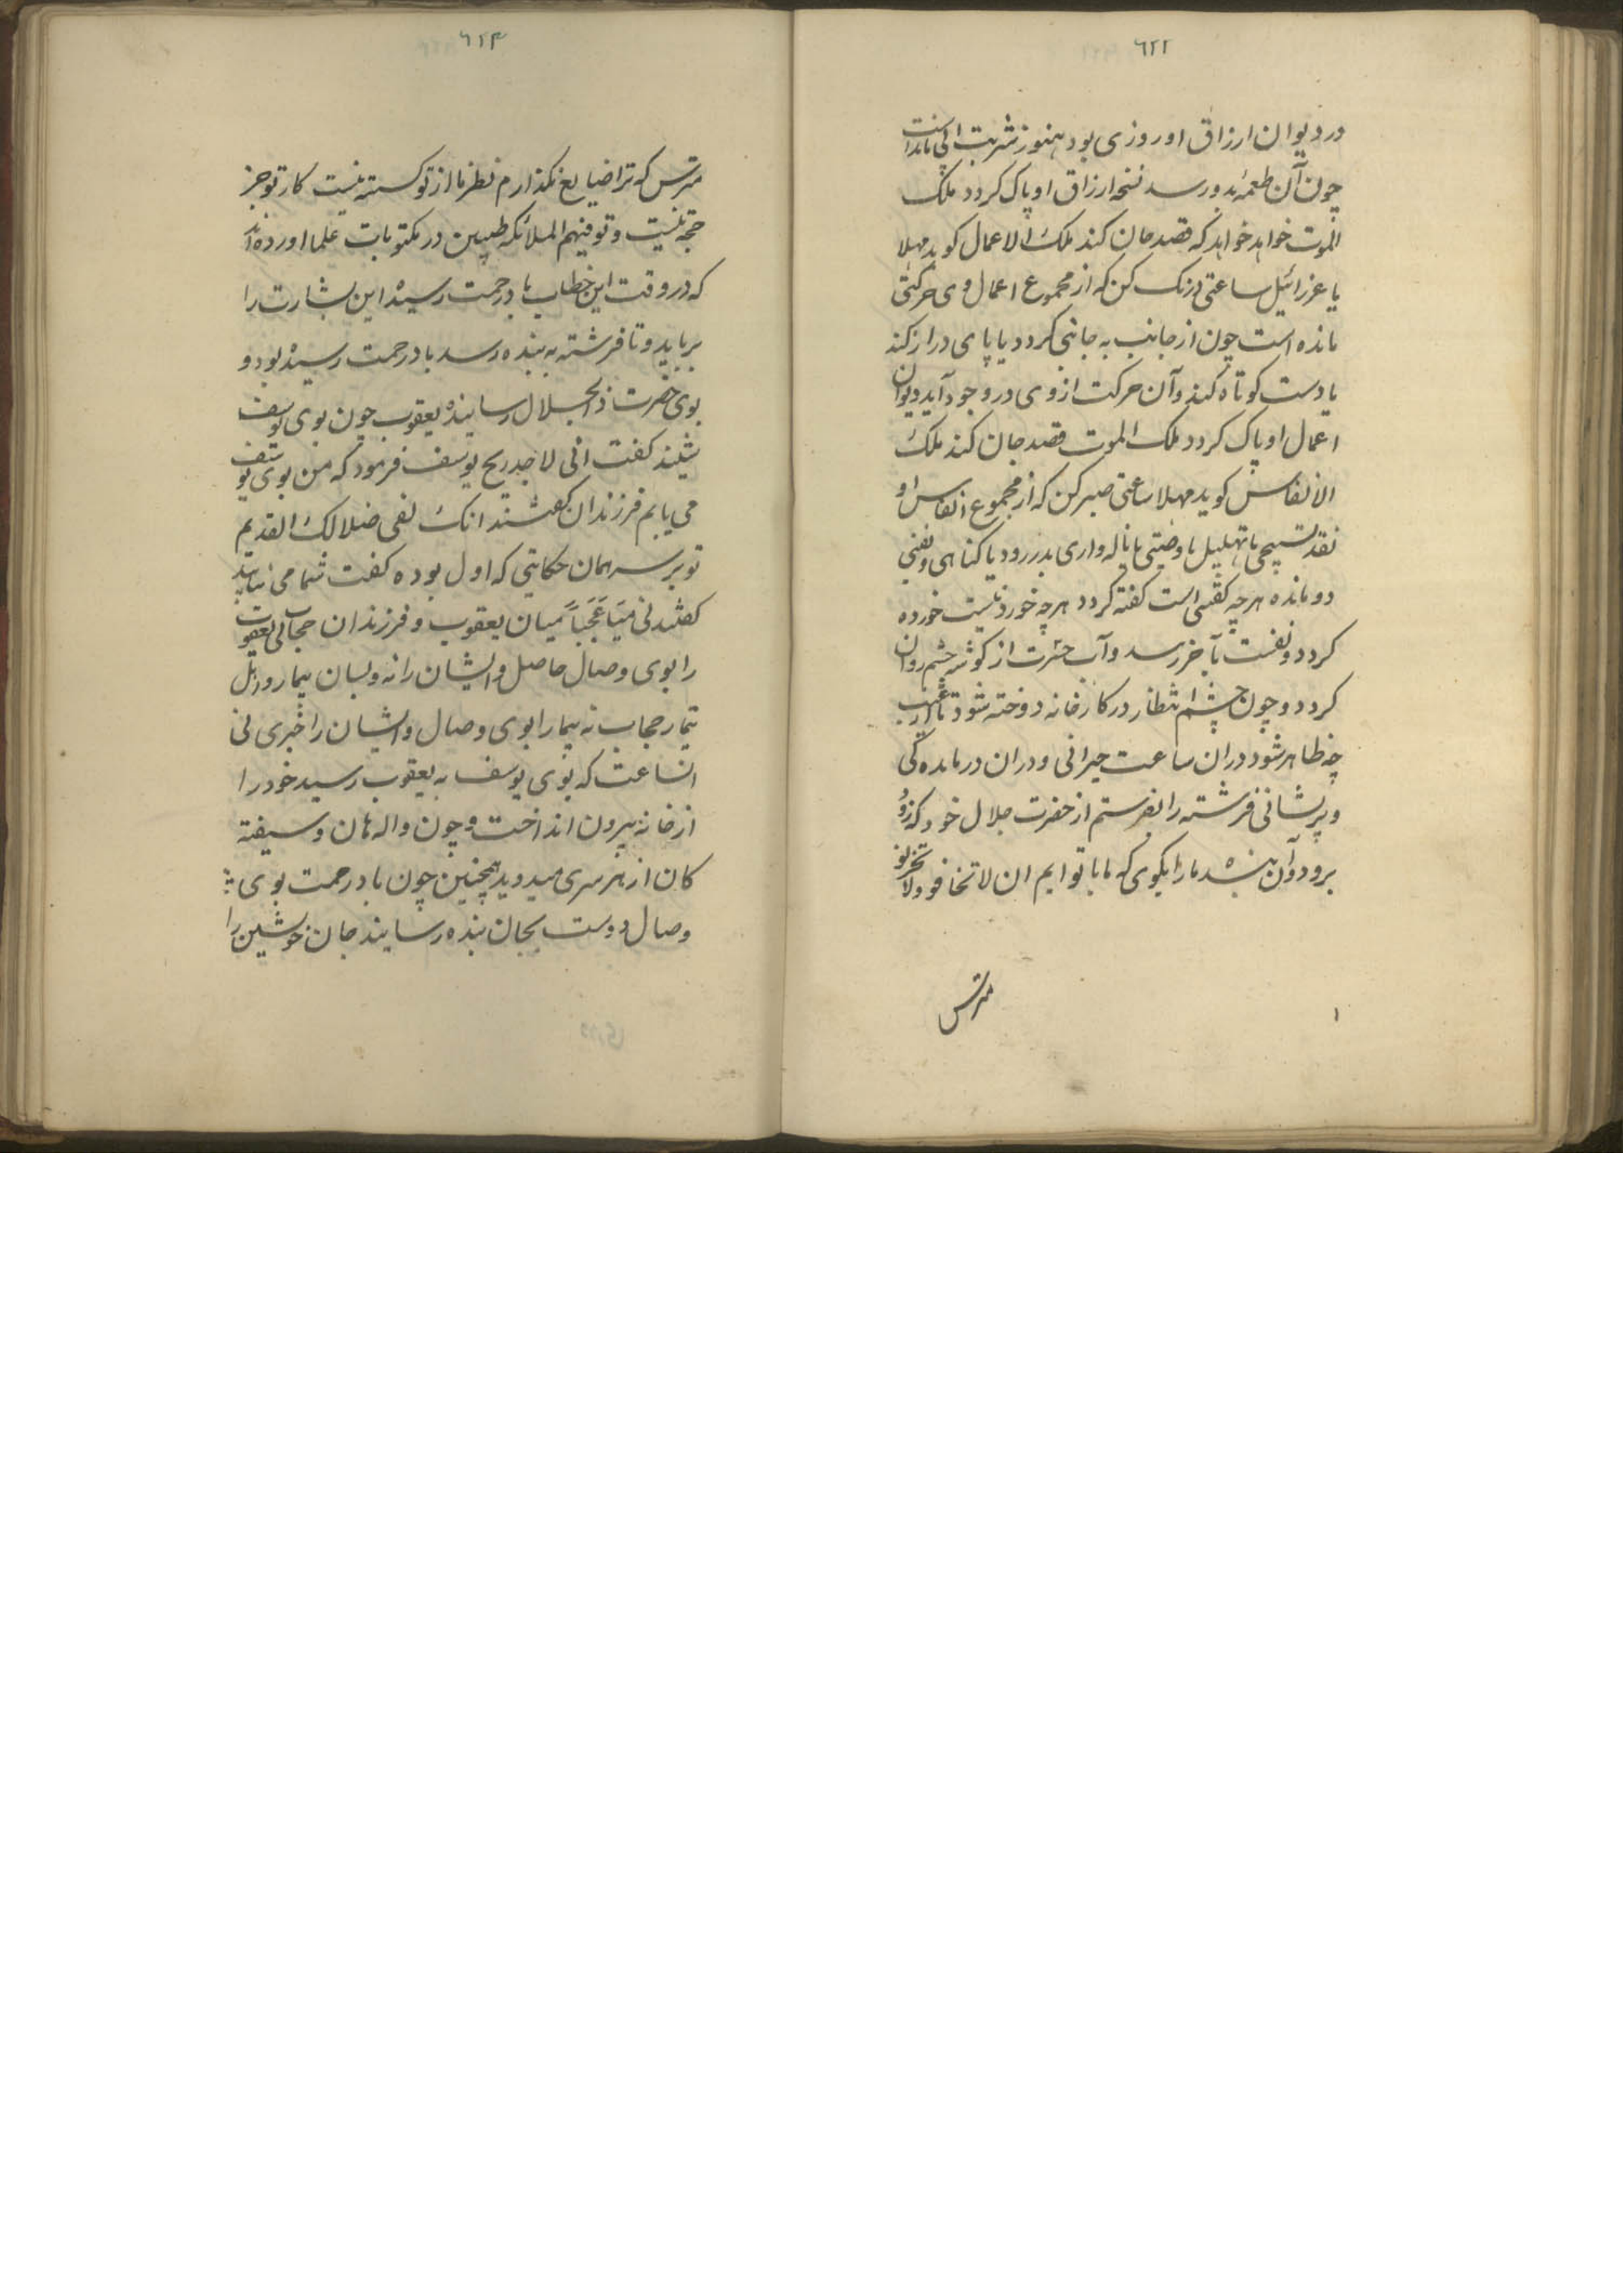 ٦٢٢
در دیوان ارزاق او روزی بود هنوز شربت آبی مانده است
چون آن طعمه بدو رسد نسخه ارزاق او پاک کردد ملک
الموت خواهد خواهد که قصد جان کند ملک الاعمال کوید مهلا
یا عزرائیل ساعتی درنک کن که از مجموع اعمال وی حرکتی
مانده است چون از جانب به جانبی کردد یا پای دراز کند
یا دست کوتاه کند و آن حرکت از وی در وجود آید دیوان
اعمال او پاک کردد ملک الموت قصد جان کند ملک
الانفاس کوید مهلا ساعتی صبر کن که از مجموع انفاس او
نقد تسبیحی یا تهلیل یا وصیتی یا ناله واری بدر رود یا کناهی و نفسی
دو مانده هرچه کفتنی است کفته کردد هرچه خوردنیست خورده
کردد و نفست بآخر رسد و آب حسرت از کوشه چشم روان
کردد و چون چشم انتظار در کارخانه دوخته شود تا از غیب
چه ظاهر شود دران ساعت حیرانی و دران درمانده کی
و پریشانی فرشته را بفرستم از حضرت جلال خود که زود
برو و آن بنده ما را بکوی که ما با توایم ان لا تخافو ولا تحزنو
مترس
١
٦٢٣
مترس که ترا ضایع نکذارم نظر ما از تو کسسته نیست کار تو جز
حجة نیست و توفیهم الملائکه طیبین در مکتوبات علما اورده اند
که در وقت این خطاب باد رحمت رسیده این بشارت را
برباید و تا فرشته به بنده رسد باد رحمت رسیده بود و
بوی حضرت ذالجلال رسانیده یعقوب چون بوی یوسف
شنید کفت انی لاجد ریح یوسف فرمود که من بوی یوسف
می یابم فرزندان کفتند انک لفی ضلالک القدیم
تو بر سر همان حکایتی که اول بوده کفت شما می نیابید
کفتند نی فیا عَجَباً میان یعقوب و فرزندان حجابی یعقوب
را بوی وصال حاصل و ایشان را نه و لسان بیمار و
تیمار حجاب نه بیمار را بوی وصال و ایشان را خبری نی
انساعت که بوی یوسف به یعقوب رسید خود را
از خانه بیرون انداخت و چون والهان و شیفته
کان از هر سری میدوید همچنین چون باد رحمت بوی
وصال دوست بجان بنده رسانید جان خویشین را